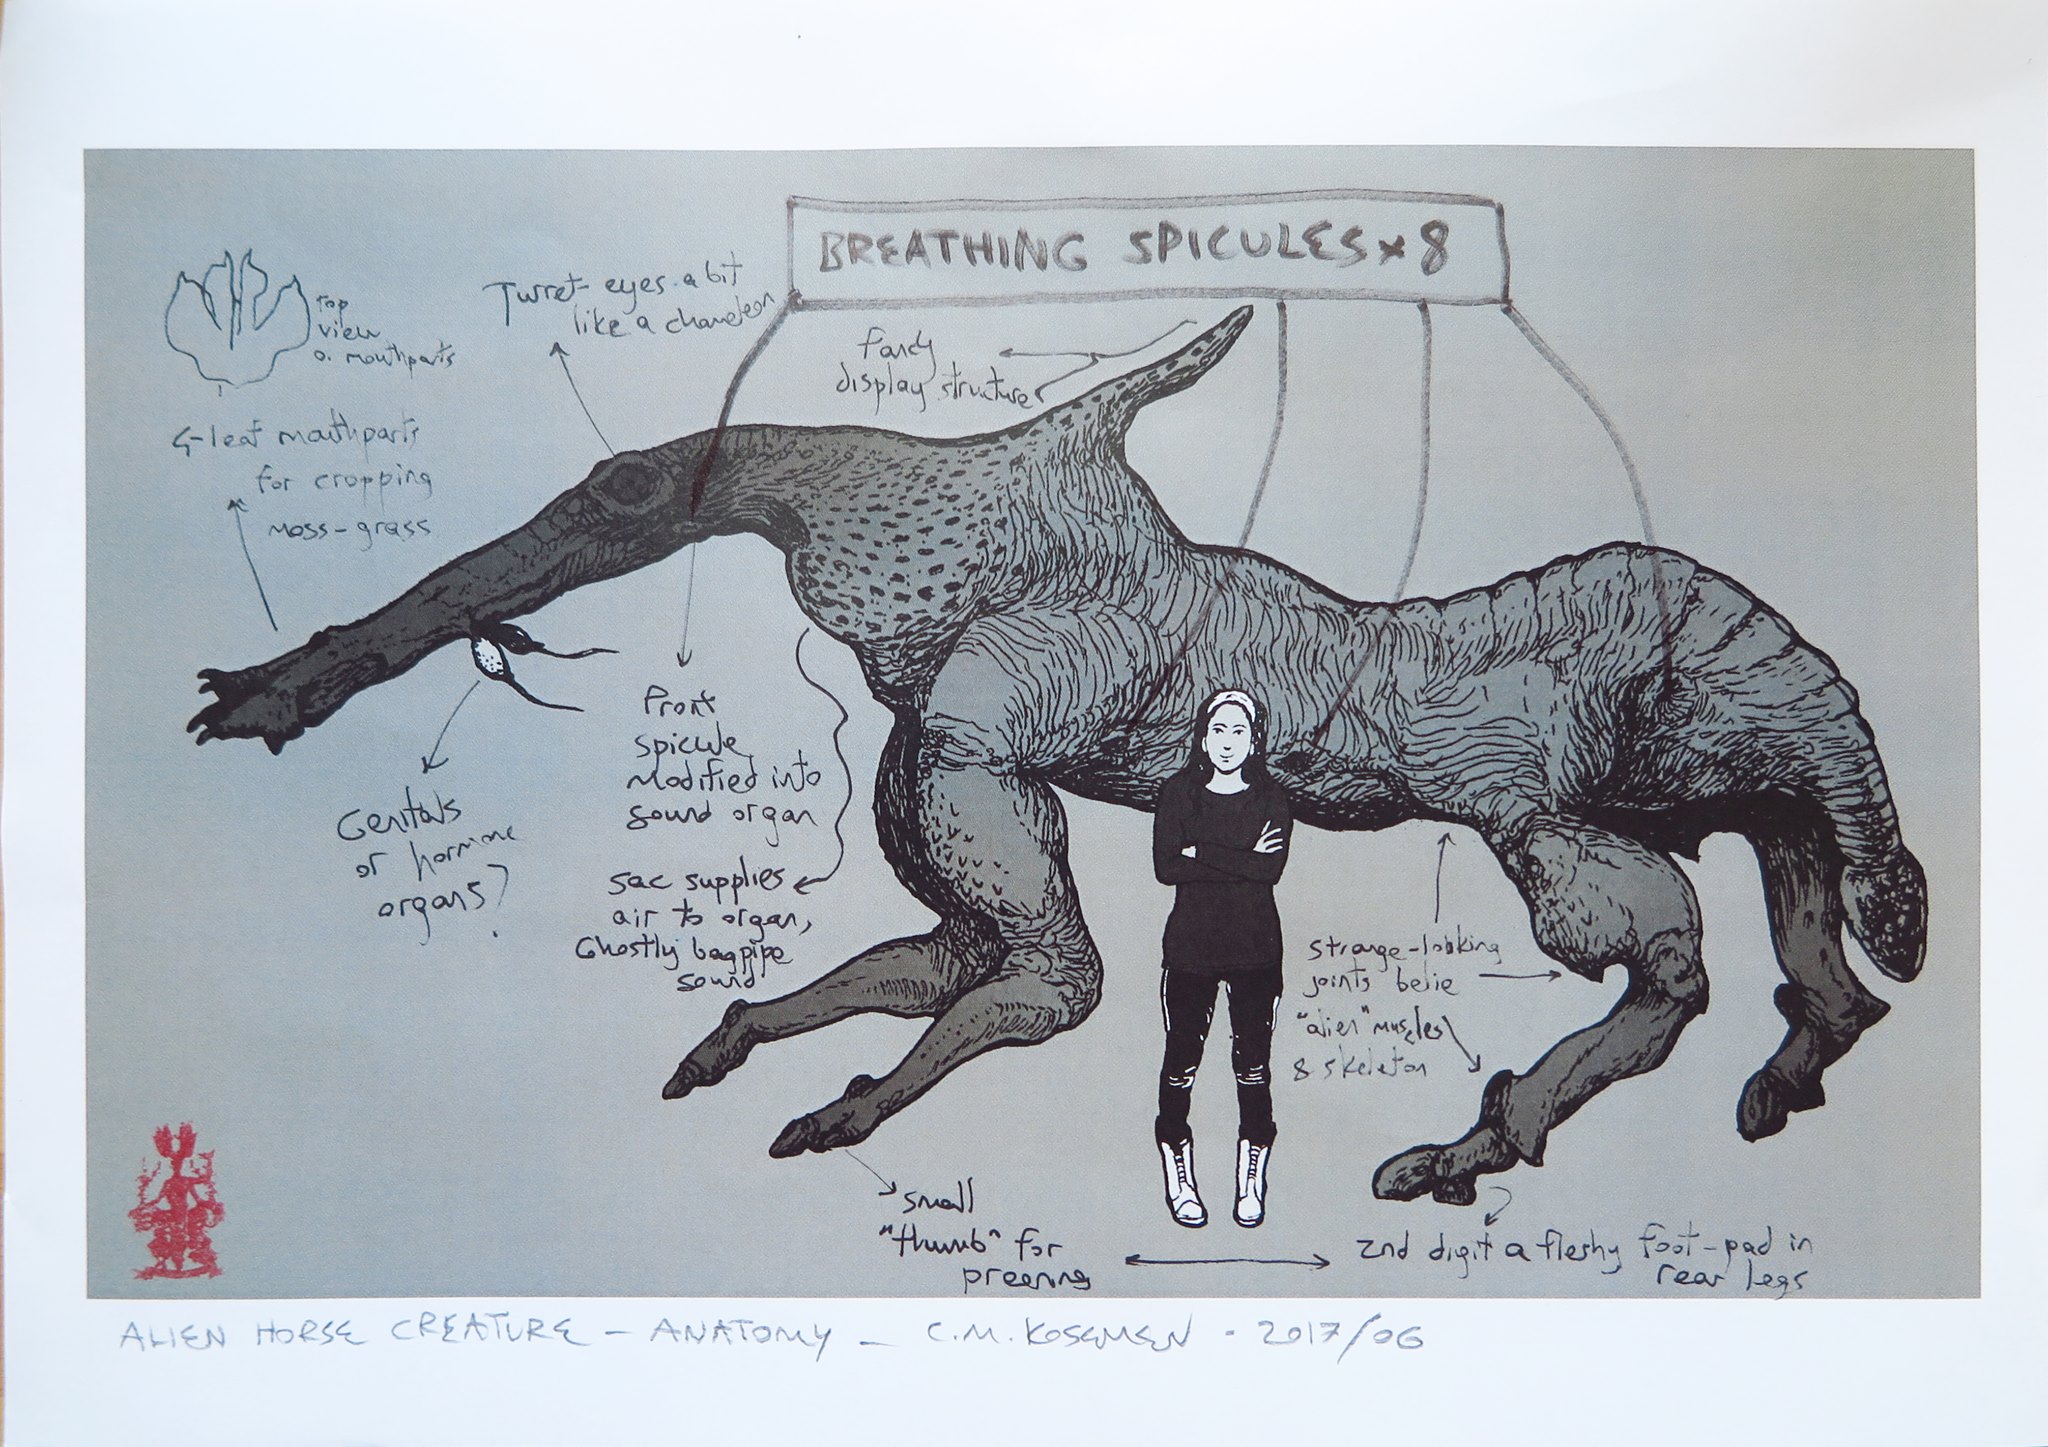 BREATHING SPICULES x 8
Turret-eyes a bit
like a chameleon
Top
view
o. mouthparts
Fancy
display structure
4-leaf mouthparts
for cropping
moss-grass
Front
spicule
modified into
sound organ
Genitals
or hormone
organs?
sac supplies
air to organ,
Ghostly bagpipe
sound
strange-looking
joints belie
"alien" muscles
& skeleton
small
"thumb" for
preening
2nd digit a fleshy foot-pad in
rear legs
ALIEN HORSE CREATURE - ANATOMY - C.M. KOSEMEN - 2017/06